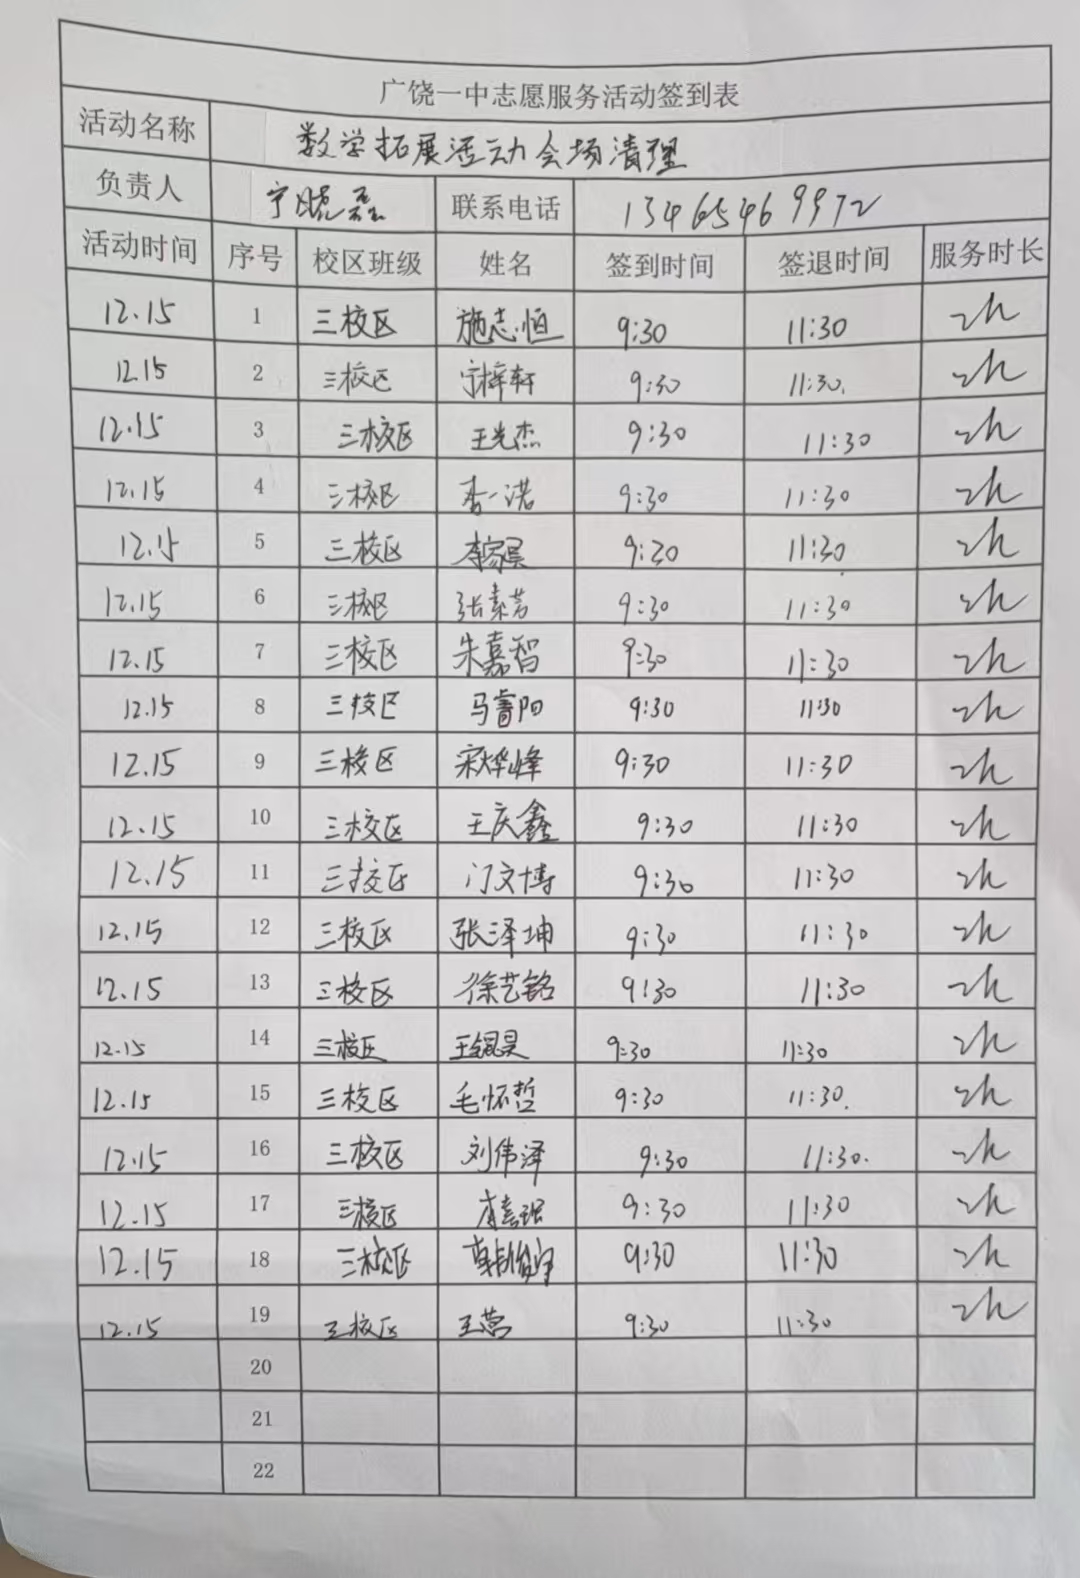 广饶一中志愿服务活动签到表
活动名称 数学拓展活动会场清理
负责人 宁晓磊 联系电话 13465469972
活动时间 序号 校区班级 姓名 签到时间 签退时间 服务时长
12.15 1 三校区 施志恒 9:30 11:30 2h
12.15 2 三校区 宁梓轩 9:30 11:30. 2h
12.15 3 三校区 王光杰 9:30 11:30 2h
12.15 4 三校区 李一诺 9:30 11:30 2h
12.15 5 三校区 李家昊 9:30 11:30 2h
12.15 6 三校区 9:30 11:30 2h
12.15 7 三校区 朱嘉智 9:30 11:30 2h
12.15 8 三校区 马睿阳 9:30 11:30 2h
12.15 9 三校区 宋烨峰 9:30 11:30 2h
12.15 10 三校区 王庆鑫 9:30 11:30 2h
12.15 11 三校区 门文博 9:30 11:30 2h
12.15 12 三校区 张泽坤 9:30 11:30 2h
12.15 13 三校区 徐艺铭 9:30 11:30 2h
12.15 14 三校区 王锟昊 9:30 11:30 2h
12.15 15 三校区 毛怀哲 9:30 11:30. 2h
12.15 16 三校区 刘伟泽 9:30 11:30. 2h
12.15 17 三校区 9:30 11:30 2h
12.15 18 三校区 9:30 11:30 2h
12.15 19 三校区 王营 9:30 11:30 2h
20
21
22